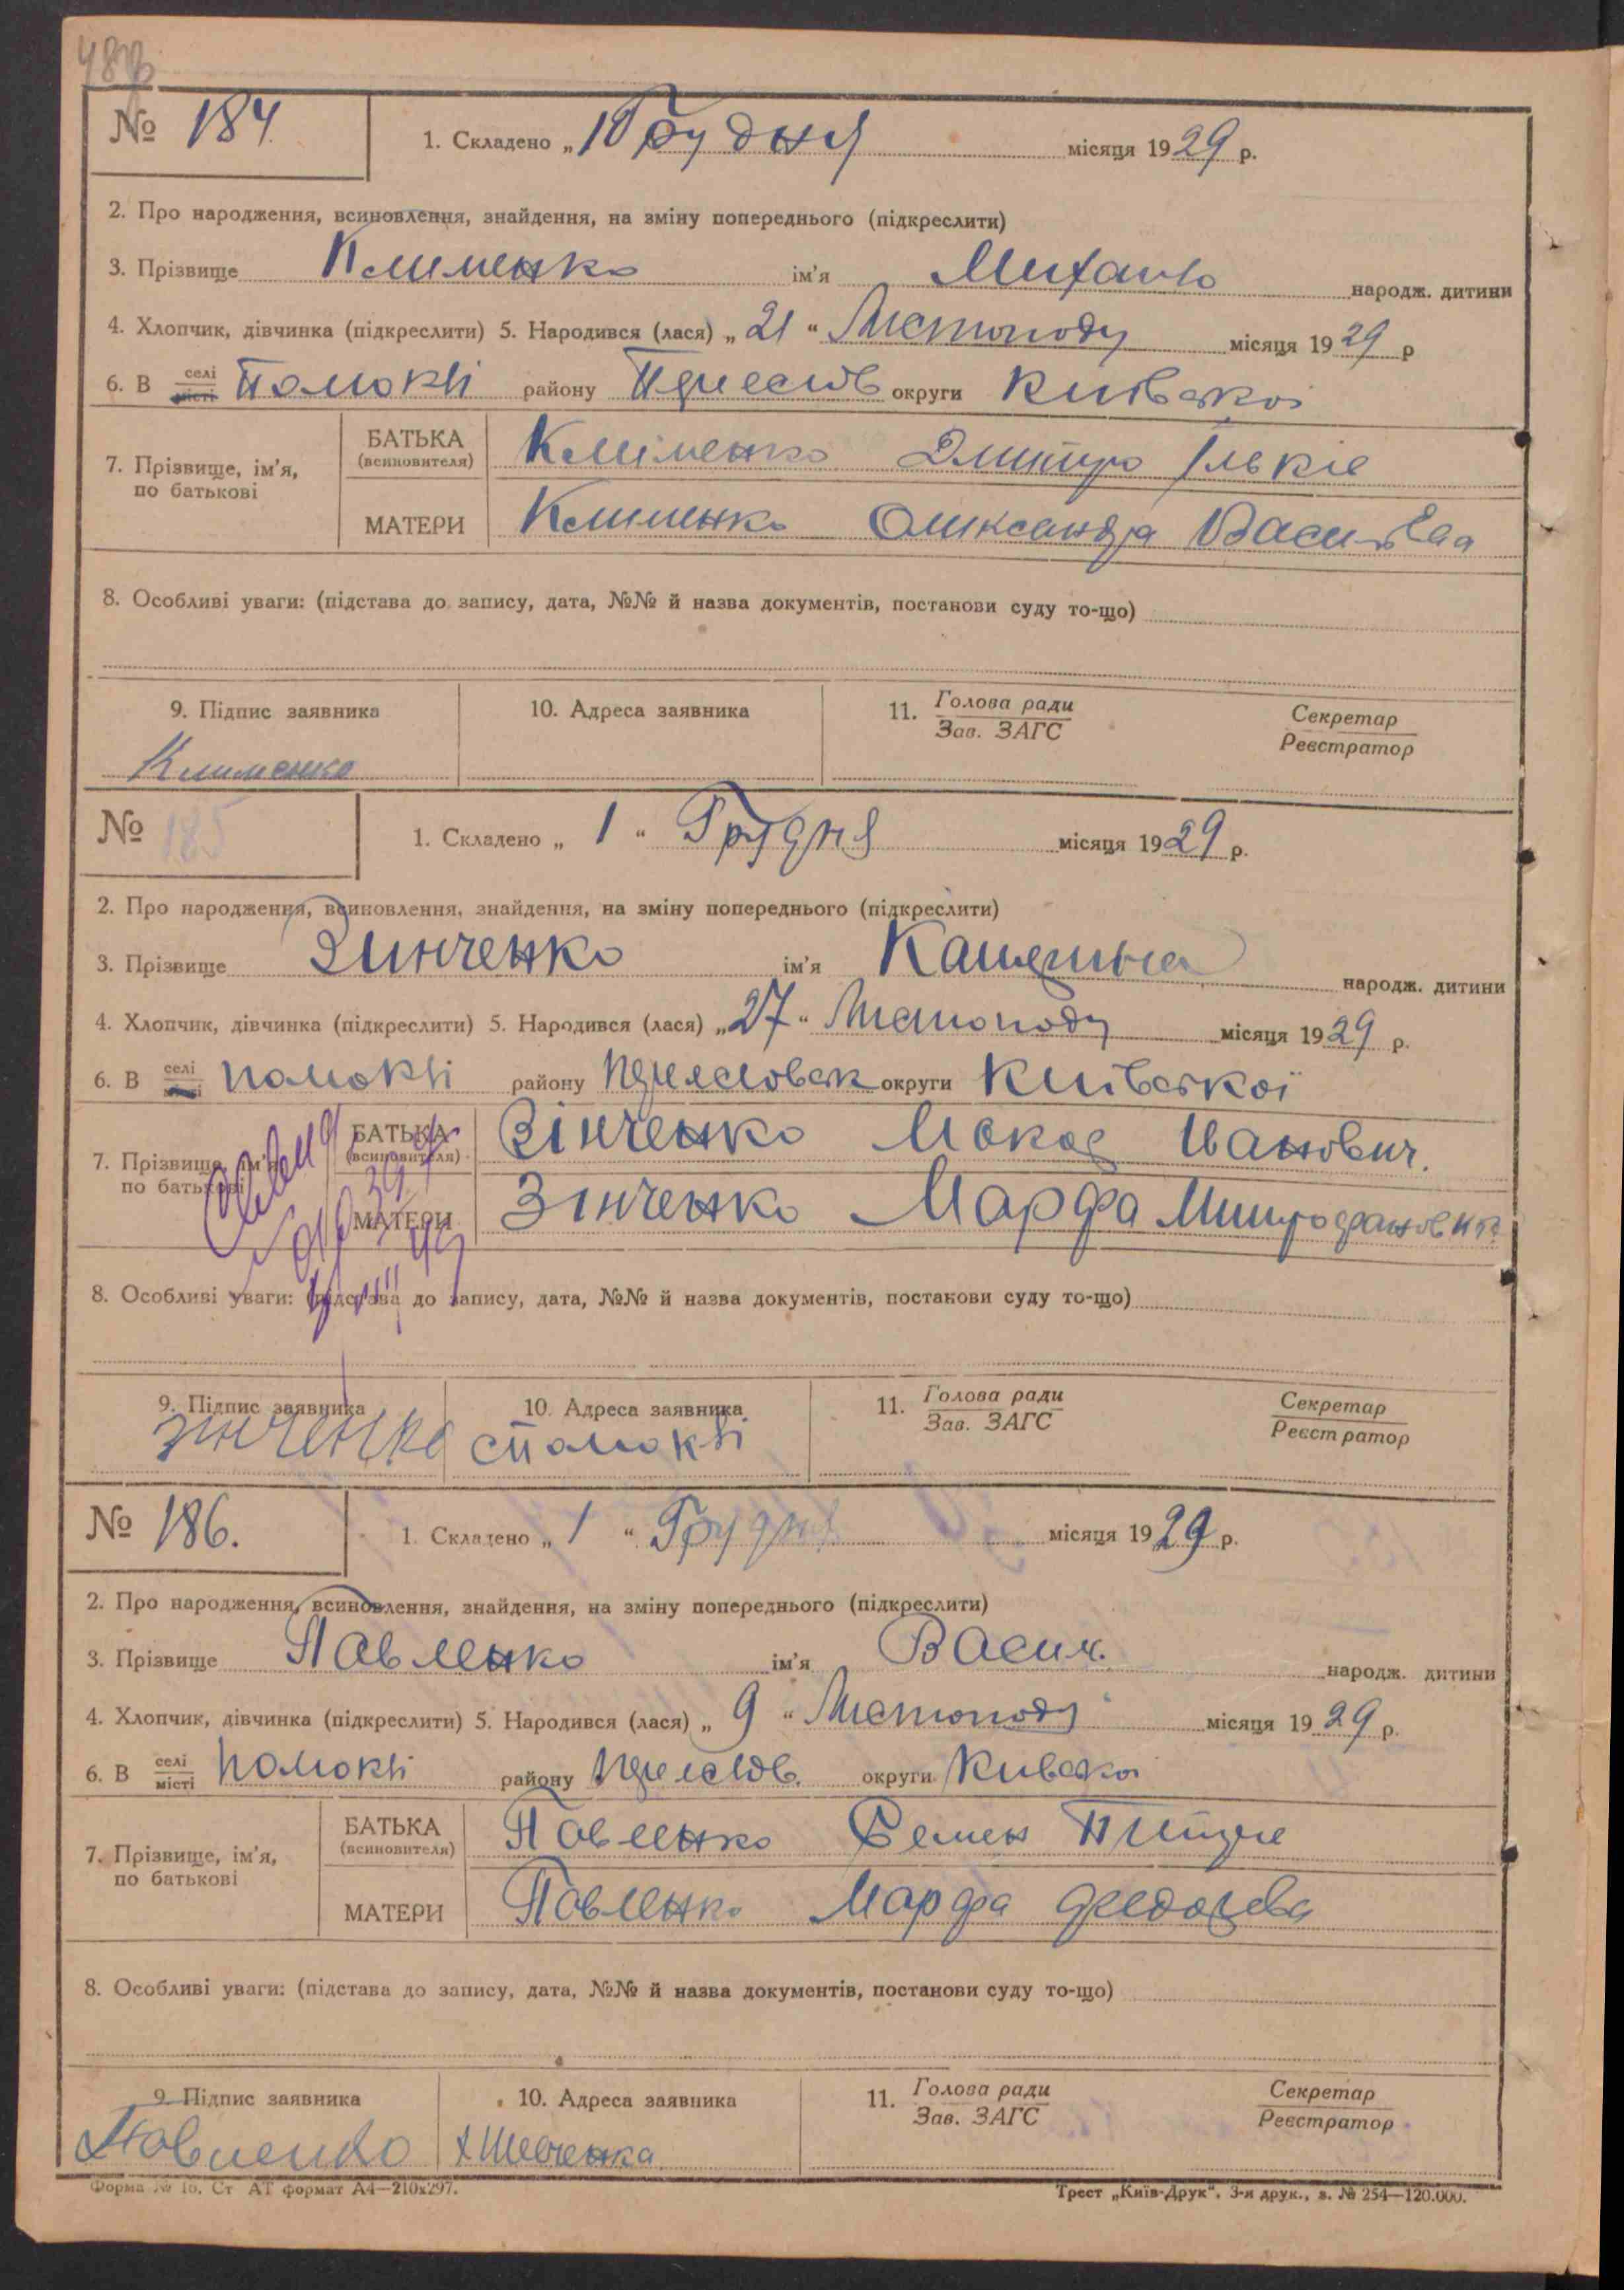 № 184. 1. Складено „1 Грудня місяця 1929 р.
2. Про народження, всиновлення, знайдення, на зміну попереднього (підкреслити)
3. Прізвище Клименко ім'я Михайло народж. дитини
4. Хлопчик, дівчинка (підкреслити) 5. Народився (лася) „ 21 “ Листопаду місяця 1929 р
6. В селі місті Помоклі району Переяслів округи Київської
7. Прізвище, ім'я, по батькові
БАТЬКА (всиновителя) Кліменко Дмитро Ількіє
МАТЕРИ Клименко Олександра
8. Особливі уваги: (підстава до запису, дата, №№ й назва документів, постанови суду то-що)
9. Підпис заявника 10. Адреса заявника 11. Голова ради Зав. ЗАГС Секретар Реєстратор
Клименко
№ 185 1. Складено „ 1 “ Грудня місяця 1929 р.
2. Про народження, всиновлення, знайдення, на зміну попереднього (підкреслити)
3. Прізвище Зинченко ім'я народж. дитини
4. Хлопчик, дівчинка (підкреслити) 5. Народився (лася) „27“ Листопаду місяця 1929 р.
6. В селі помоклі району округи Київської
7. Прізвище, ім'я, по батькові
БАТЬКА (всиновителя) Зінченко Иванович.
МАТЕРИ Зінченко Марфа
8. Особливі уваги: (підстава до запису, дата, №№ й назва документів, постанови суду то-що)
9. Підпис заявника 10. Адреса заявника 11. Голова ради Зав. ЗАГС Секретар Реєстратор
зінченко с Помоклі
№ 186. 1. Складено „ 1 “ Грудня місяця 1929 р.
2. Про народження, всиновлення, знайдення, на зміну попереднього (підкреслити)
3. Прізвище Павленко ім'я Васил. народж. дитини
4. Хлопчик, дівчинка (підкреслити) 5. Народився (лася) „ 9 “ Листопаду місяця 1929 р.
6. В селі місті Помоклі району Переяслів. округи
7. Прізвище, ім'я, по батькові
БАТЬКА (всиновителя) Павленко Семен
МАТЕРИ Павленко Марфа
8. Особливі уваги: (підстава до запису, дата, №№ й назва документів, постанови суду то-що)
9. Підпис заявника 10. Адреса заявника 11. Голова ради Зав. ЗАГС Секретар Реєстратор
Павленко х Шевченка
Форма № 1б. Ст АТ формат А4—210х297. Трест „Київ-Друк“, 3-я друк., з. № 254—120.000.